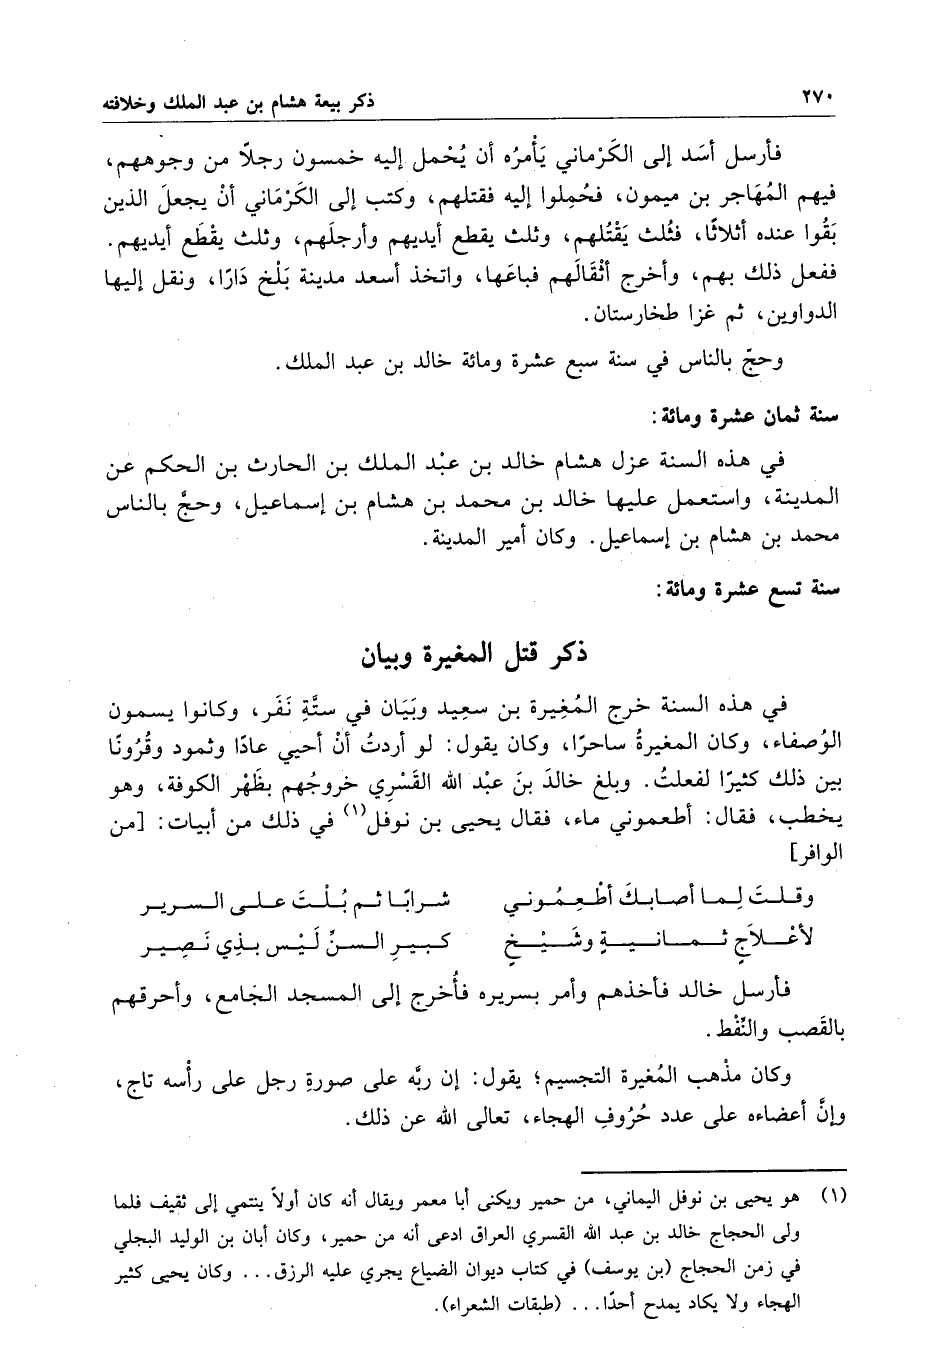 ٢٧٠
ذكر بيعة هشام بن عبد الملك وخلافته
فأرسل أسَد إلى الكَرْماني يَأْمرُه أن يُحْمل إليه خمسون رجلاً من وجوههم،
فيهم المُهَاجر بن ميمون، فحُمِلوا إليه فقتلهم، وكتب إلى الكَرْمَاني أنْ يجعلَ الذين
بَقُوا عنده أثلاثًا، فثُلث يَقْتُلهم، وثلث يقطع أيديهم وأرجلَهم، وثلث يقْطَع أيديهم.
ففعل ذلك بهم، وأخرج أثْقَالَهم فباعَها، واتخذ أسعد مدينة بَلْخ دَارًا، ونقل إليها
الدواوين، ثم غزا طخارستان.
وحجّ بالناس في سنة سبع عشرة ومائة خالد بن عبد الملك.
سنة ثمان عشرة ومائة:
في هذه السنة عزل هشام خالد بن عبْد الملك بن الحارث بن الحكم عن
المدينة، واستعمل عليها خالد بن محمد بن هشام بن إسماعيل، وحجَّ بالناس
محمد بن هشام بن إسماعيل. وكان أمير المدينة.
سنة تسع عشرة ومائة:
ذكر قتل المغيرة وبيان
في هذه السنة خرج المُغِيرة بن سعيد وبَيَان في ستَّةِ نَفَر، وكانوا يسمون
الوُصفاء، وكان المغيرةُ ساحرًا، وكان يقول: لو أردتُ أنْ أحيي عادًا وثمود وقُرُونًا
بين ذلك كثيرًا لفعلتُ. وبلغ خالدَ بنَ عبْد الله القَسْرِي خروجُهم بظَهْر الكوفة، وهو
يخطب، فقال: أطعموني ماء، فقال يحيى بن نوفل(١) في ذلك من أبيات: [من
الوافر]
وقلتَ لِما أصابكَ أطْعِمُوني شرابًا ثم بُلْتَ على السرير
لأعْلاَجٍ ثمانيةٍ وشَيْخٍ كبيرِ السنّ لَيْس بذِي نَصِير
فأرسل خالد فأخذهم وأمر بسريره فأُخرج إلى المسجد الجَامع، وأحرقهم
بالقَصب والنَّفْط.
وكان مذْهب المُغيرة التجسيم؛ يقول: إن ربَّه على صورةِ رجل على رأْسه تاج،
وإنَّ أعضاءه على عدد حُرُوفِ الهجاء، تعالى الله عن ذلك.
(١) هو يحيى بن نوفل اليماني، من حمير ويكنى أبا معمر ويقال أنه كان أولاً ينتمي إلى ثقيف فلما
ولى الحجاج خالد بن عبد الله القسري العراق ادعى أنه من حمير، وكان أبان بن الوليد البجلي
في زمن الحجاج (بن يوسف) في كتاب ديوان الضياع يجري عليه الرزق... وكان يحيى كثير
الهجاء ولا يكاد يمدح أحدًا... (طبقات الشعراء).